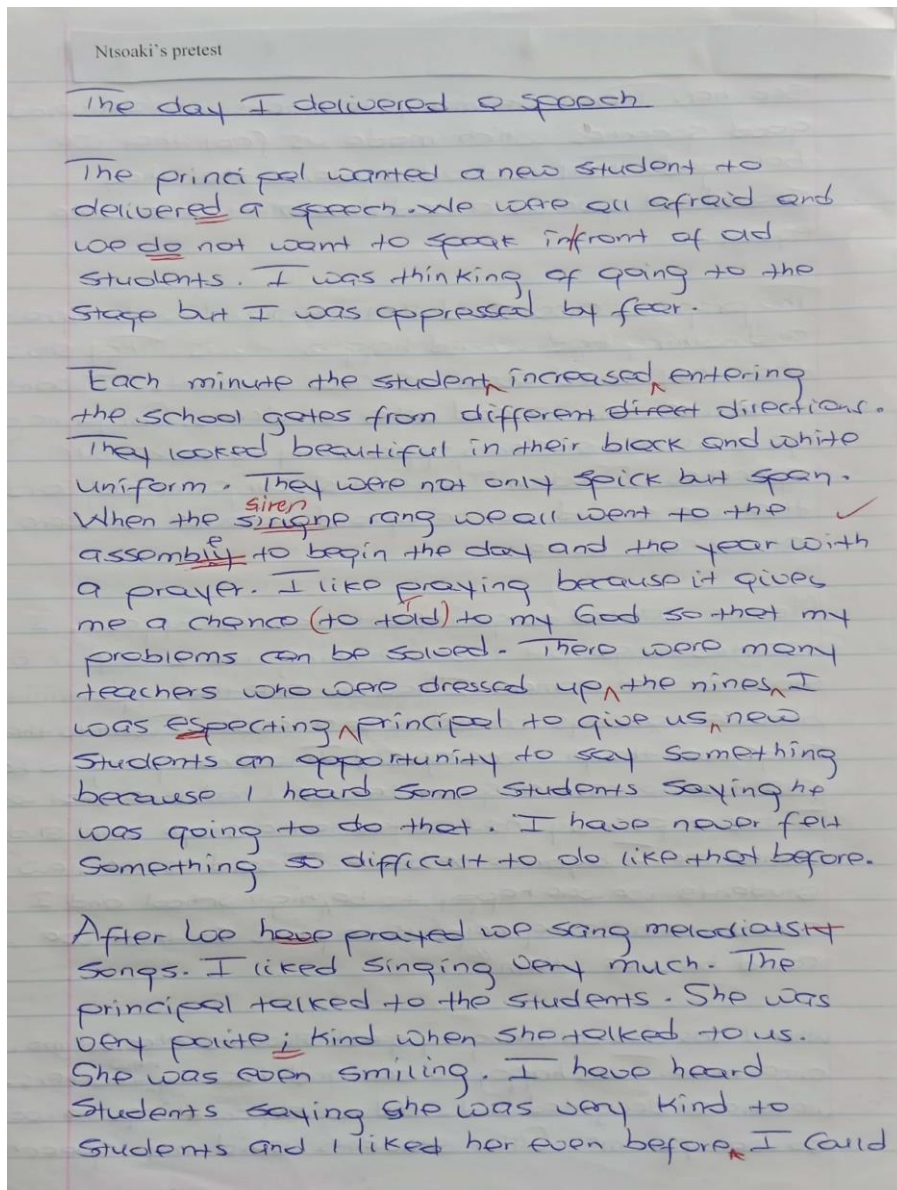 Ntsoaki's pretest
The day I delivered a speech
The principal wanted a new student to
delivered a speech. We were all afraid and
we do not want to speak infront of ad
students. I was thinking of going to the
stage but I was oppressed by fear.
Each minute the student increased entering
the school gates from different direct directions.
They looked beautiful in their black and white
uniform. They were not only spick but span.
siren
When the sirigne rang we all went to the
e
assembly to begin the day and the year with
a prayer. I like praying because it gives
me a chance (to told) to my God so that my
problems can be solved. There were many
teachers who were dressed up the nines I
was especting principal to give us new
students an opportunity to say something
because I heard some students saying he
was going to do that. I have never felt
something so difficult to do like that before.
After we have prayed we sang
songs. I liked singing very much. The
principal talked to the students. She was
very polite ; kind when she talked to us.
She was even smiling. I have heard
students saying she was very kind to
students and I liked her even before I could